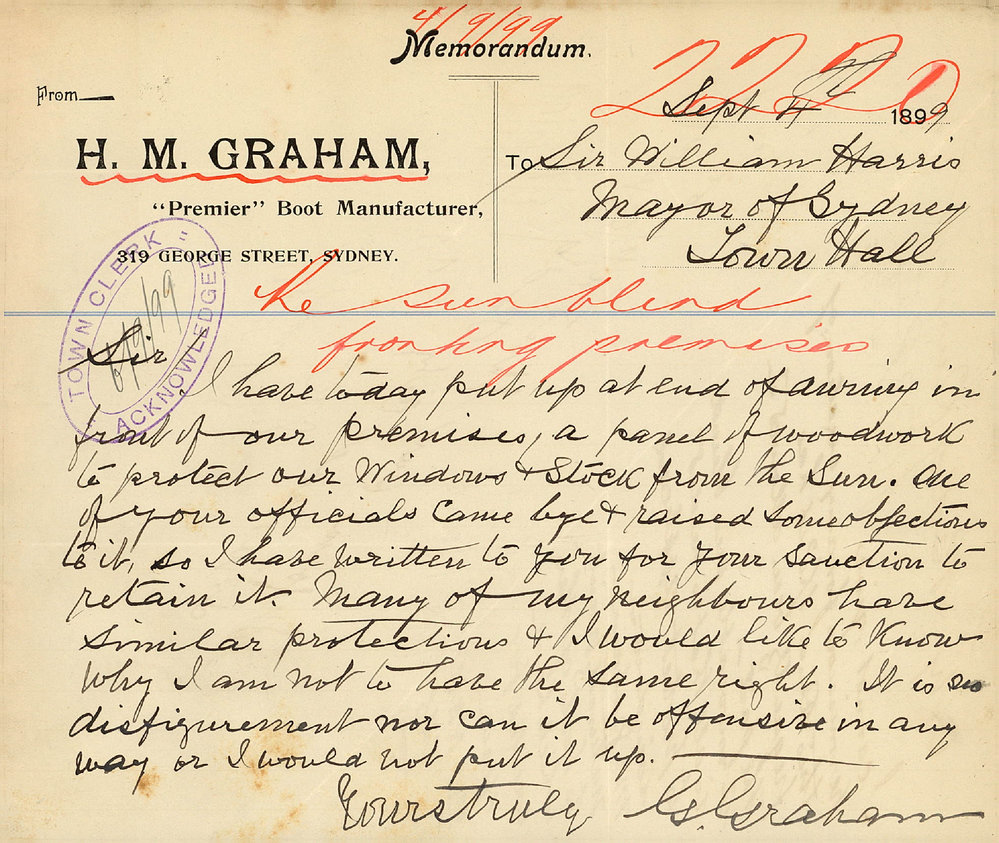 4/9/99
Memorandum.
2220
From
Sept 4th 1899
H. M. GRAHAM,
To Sir William Harris
"Premier" Boot Manufacturer,
Mayor of Sydney
319 GEORGE STREET, SYDNEY.
Town Hall
TOWN CLERK
6/9/99
ACKNOWLEDGED
Re sun blind
fronting premises
Sir
I have today put up at end of awning in
front of our premises, a panel of woodwork
to protect our Windows & Stock from the Sun. One
of your officials came bye & raised some objections
to it, so I have written to you for your sanction to
retain it. Many of my neighbours have
similar protections & I would like to Know
why I am not to have the same right. It is no
disfigurement nor can it be offensive in any
way or I would not put it up.
Yours truly G. Graham